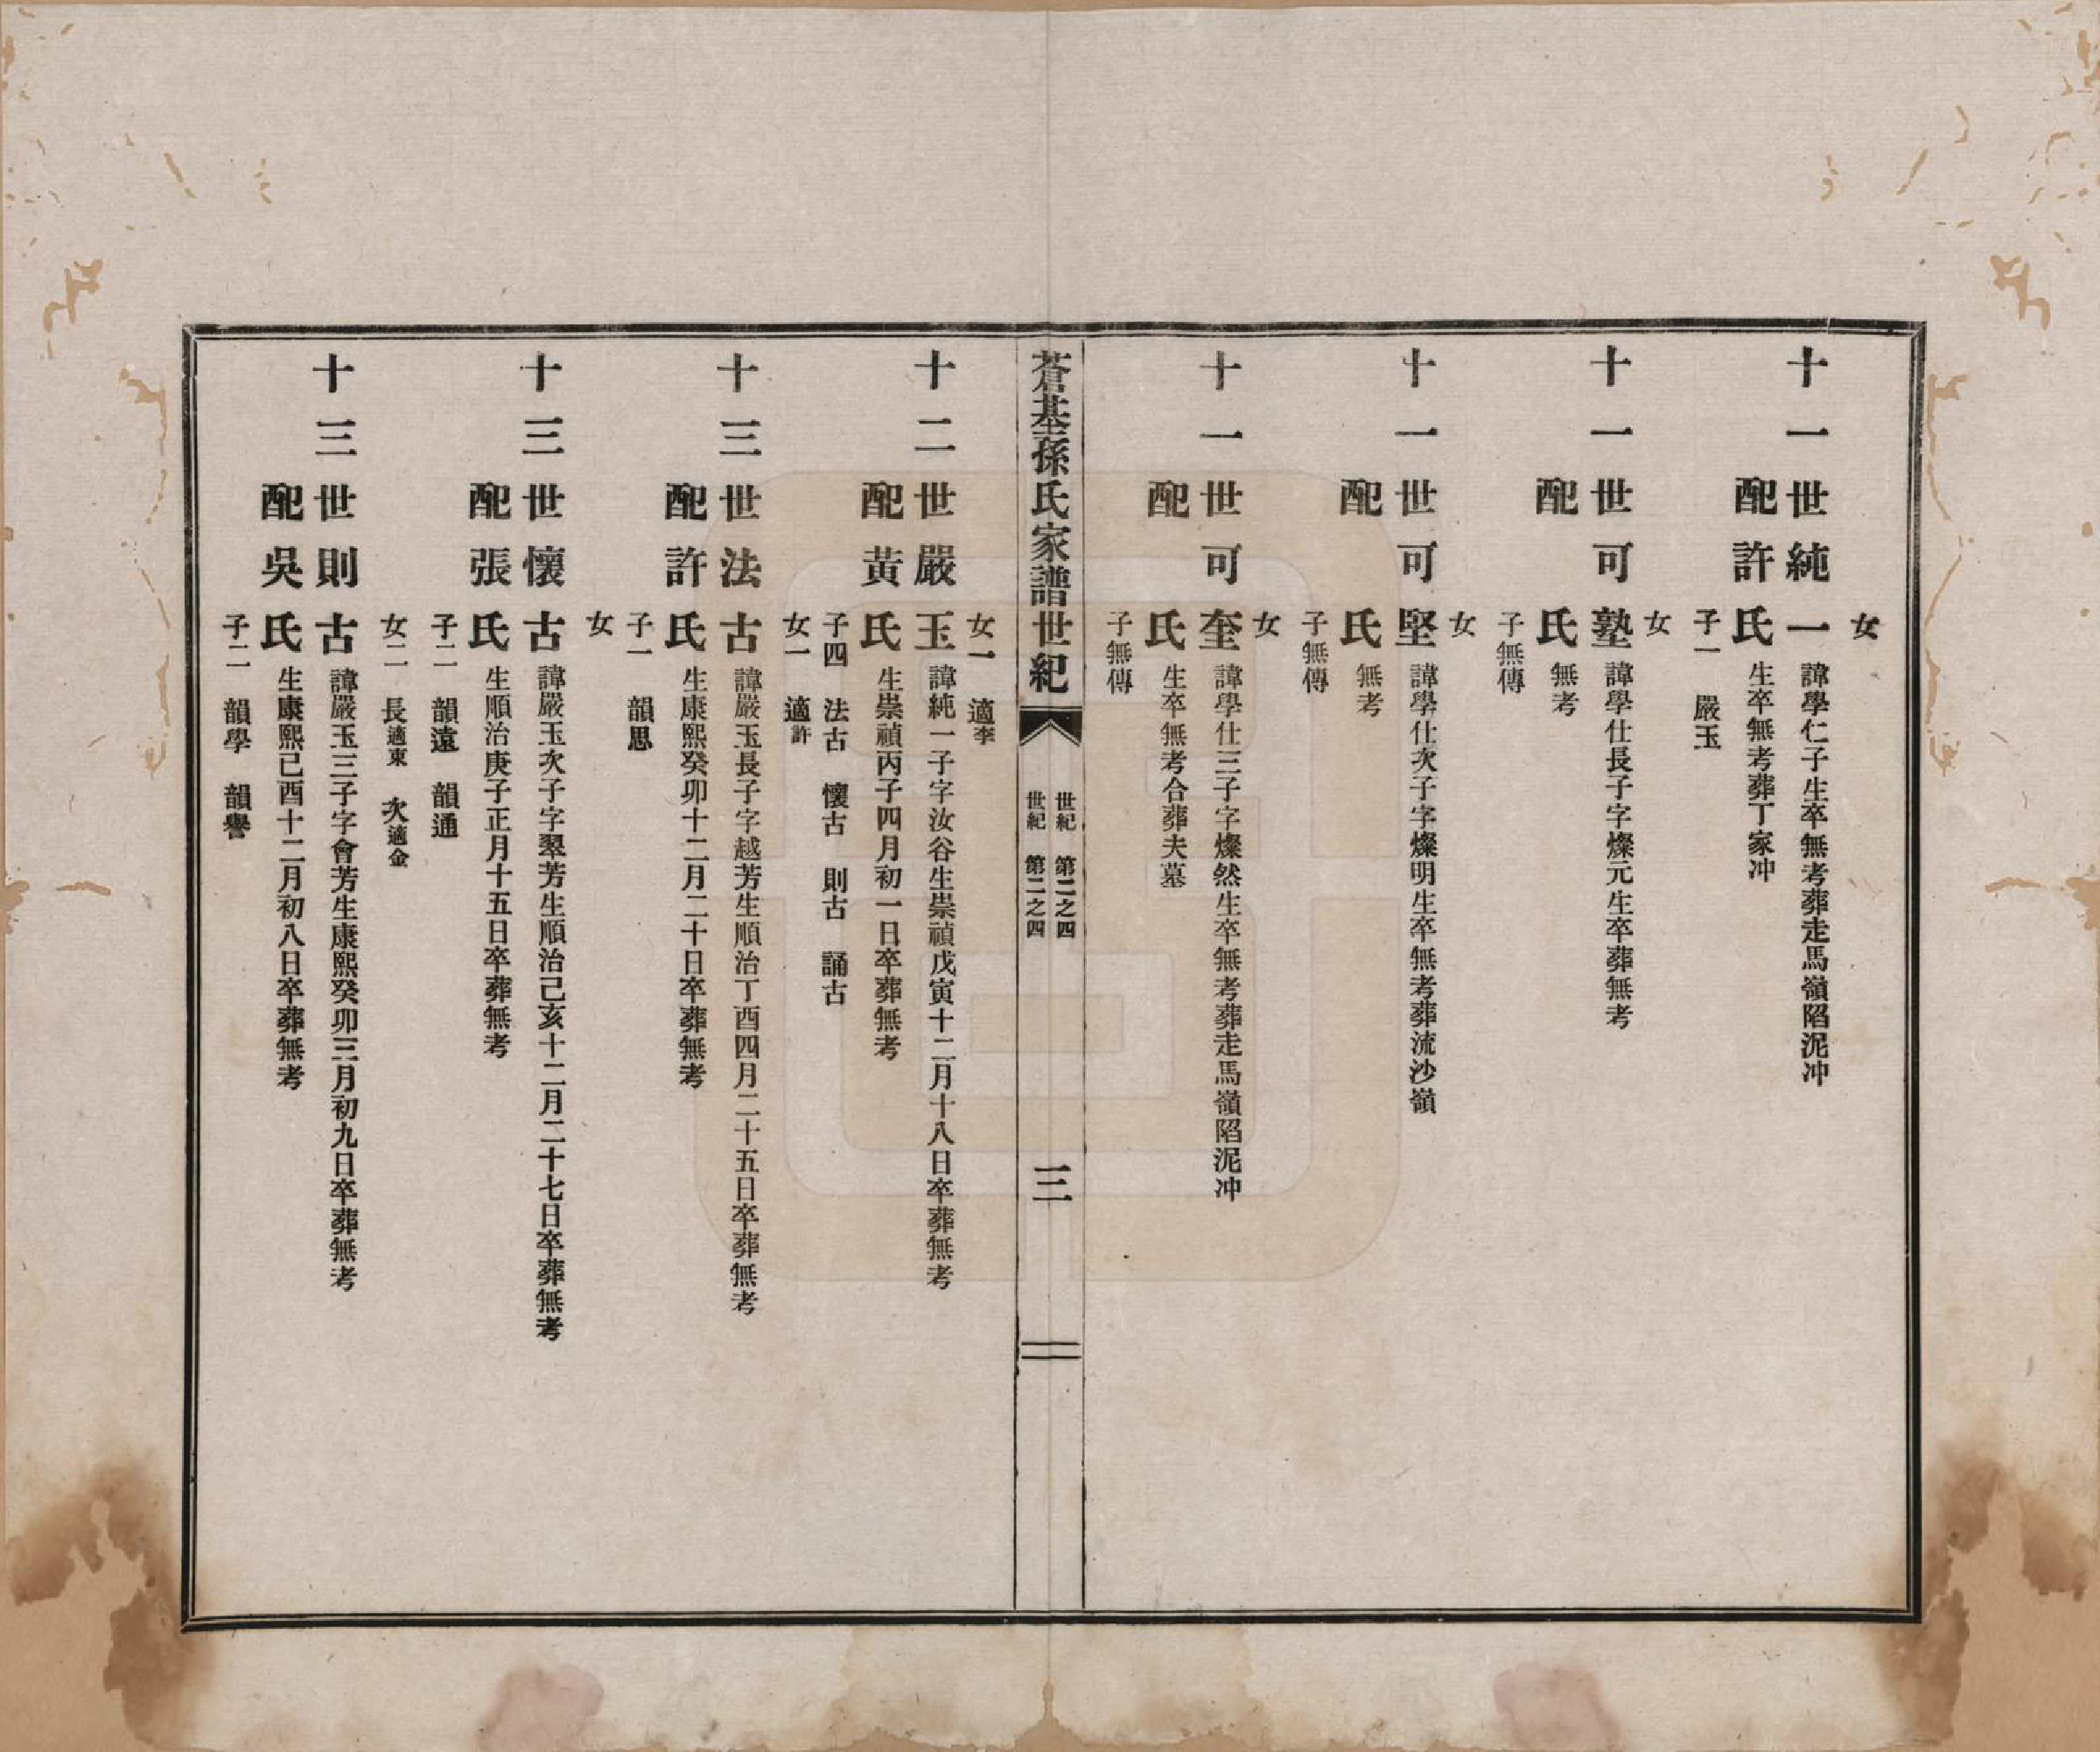 女
十一世純一　諱學仁子生卒無考葬走馬嶺陷泥冲
配許氏　生卒無考葬丁家冲
子一　嚴玉
女
十一世可塾　諱學仕長子字燦元生卒葬無考
配　氏　無考
子無傳
女
十一世可堅　諱學仕次子字燦明生卒無考葬流沙嶺
配　氏　無考
子無傳
女
十一世可奎　諱學仕三子字燦然生卒無考葬走馬嶺陷泥冲
配　氏　生卒無考合葬夫墓
子無傳
蒼基孫氏家譜世紀
世紀　第二之四
世紀　第二之四
三
女一　適李
十二世嚴玉　諱純一子字汝谷生崇禎戊寅十二月十八日卒葬無考
配黃氏　生崇禎丙子四月初一日卒葬無考
子四　法古　懷古　則古　誦古
女一　適許
十三世法古　諱嚴玉長子字越芳生順治丁酉四月二十五日卒葬無考
配許氏　生康熙癸卯十二月二十日卒葬無考
子一　韻思
女
十三世懷古　諱嚴玉次子字翠芳生順治己亥十二月二十七日卒葬無考
配張氏　生順治庚子正月十五日卒葬無考
子二　韻遠　韻通
女二　長適東　次適金
十三世則古　諱嚴玉三子字會芳生康熙癸卯三月初九日卒葬無考
配吳氏　生康熙己酉十二月初八日卒葬無考
子二　韻學　韻譽